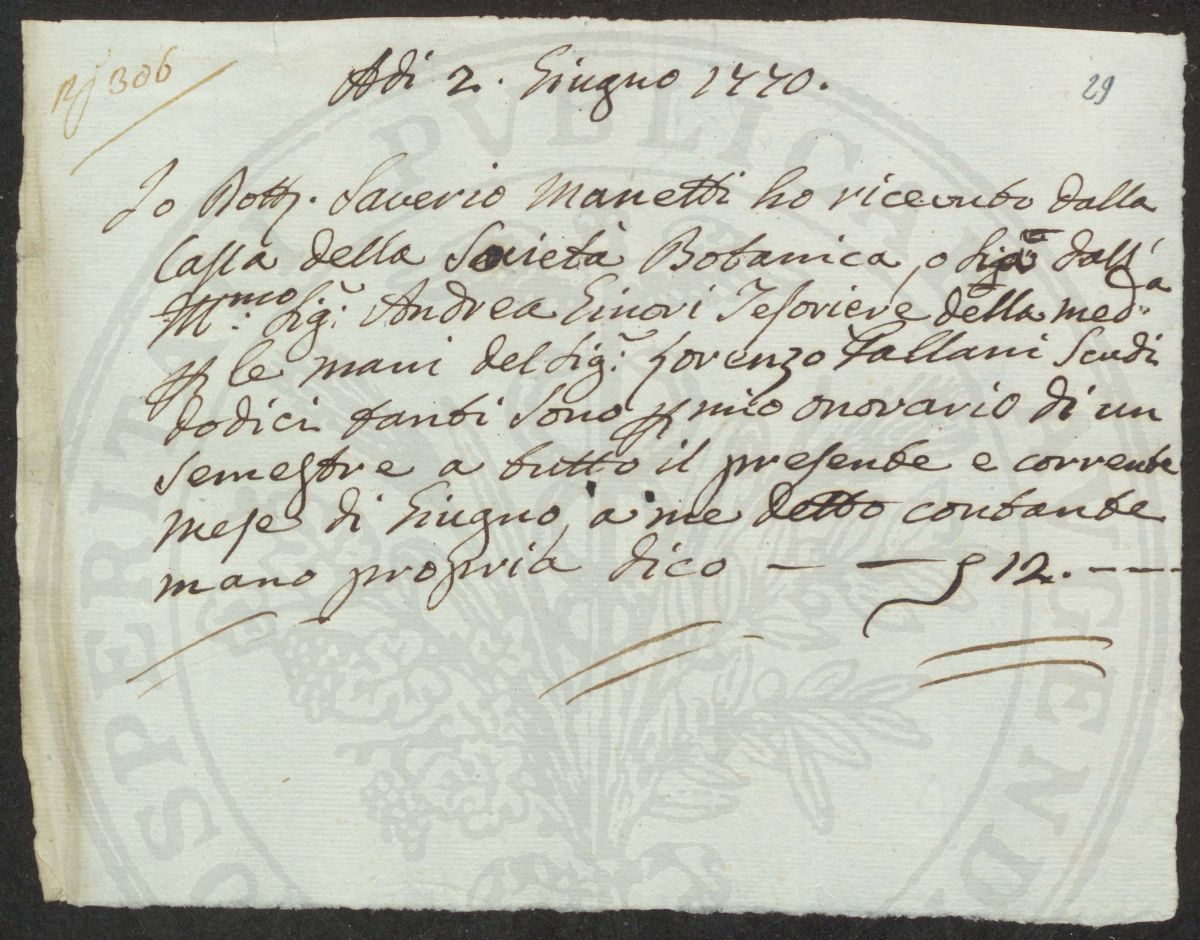 N° 306
Adi 2. Giugno 1770.
29
Io Dott. Saverio Manetti ho ricevuto dalla
Cassa della Società Botanica, o sia dall'
Ill.mo Sig.r Andrea Ginori Tesoriere della med.a
p le mani del Sig.r Lorenzo Fallani Scudi
dodici tanti sono p mio onorario di un
semestre a tutto il presente e corrente
mese di Giugno, a me detto contante
mano propria dico — — 12. ---
PUBLICAE
PROSPERITATI
AUGENDAE